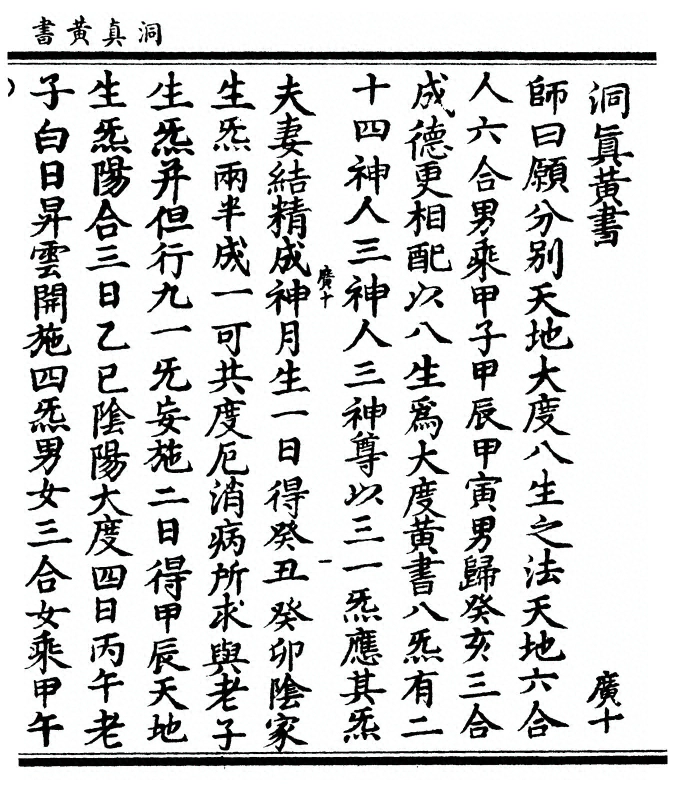 洞真黄書
洞眞黄書
廣十
師曰願分别天地大度八生之法天地六合
人六合男乘甲子甲辰甲寅男歸癸亥三合
成德更相配以八生爲大度黄書八炁有二
十四神人三神人三神尊以三一炁應其炁
廣十
一
夫妻結精成神月生一日得癸丑癸卯陰家
生炁兩半成一可共度厄消病所求與老子
生炁并但行九一旡妄施二日得甲辰天地
生炁陽合三日乙巳陰陽大度四日丙午老
子白日昇雲開施四炁男女三合女乘甲午